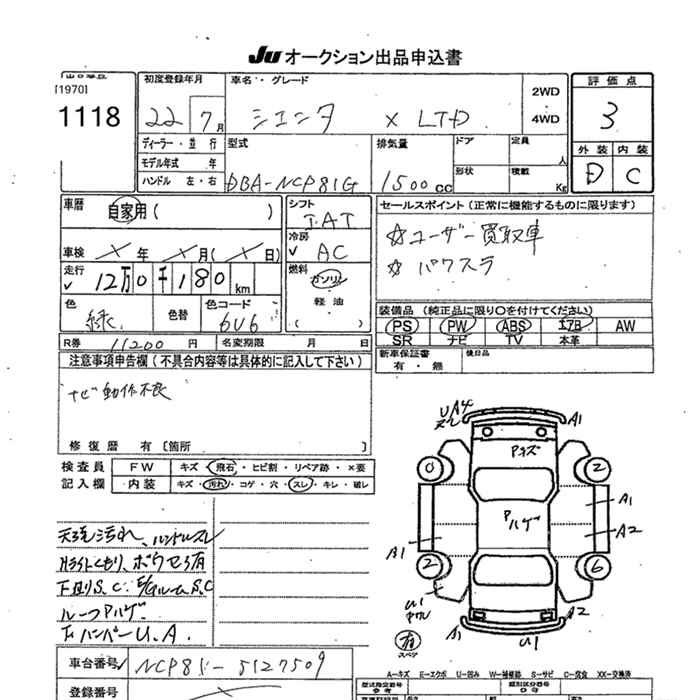 JU オークション出品申込書
[1970]
1118
初度登録年月
22年 7月
車名・グレード
シエンタ X LTD
2WD
4WD
評価点
3
外装 内装
D C
ディーラー・並行
モデル年式 年
ハンドル 左・右
型式
DBA-NCP81G
排気量
1500 cc
ドア
定員 人
形状
積載 Kg
車歴
自家用( )
シフト
IAT
セールスポイント(正常に機能するものに限ります)
☆ユーザー買取車
☆パワスラ
冷房
AC
車検 × 年 × 月(× 日)
走行
12万0千180 km
燃料
ガソリン
軽油
( )
色
緑
色替
色コード
6V6
装備品(純正品に限り○を付けてください)
PS PW ABS エアB AW
SR ナビ TV 本革
R券 11200 円
名変期限 月 日
新車保証書
有・無
後日品
注意事項申告欄(不具合内容等は具体的に記入して下さい)
ナビ動作不良
修復歴 有[箇所 ]
検査員
記入欄
FW キズ・飛石・ヒビ割・リペア跡・×要
内装 キズ・汚れ・コゲ・穴・スレ・キレ・破レ
天張汚れ、ハンドルスレ
外ライトくもり、ボウセイ有
下廻りS.C. E/GルームS.C
ルーフPハゲ
FバンパーU.A.
UA4
スレ
A1
Pキズ
0
2
A1
A2
Pハゲ
A1
2
6
U1
A1
U1
A2
有
スペア
車台番号 NCP81-5127509
登録番号
A−キズ E−エクボ U−凹み W−補修跡 S−サビ C−腐食 XX−交換済
型式指定番号
類別区分番号